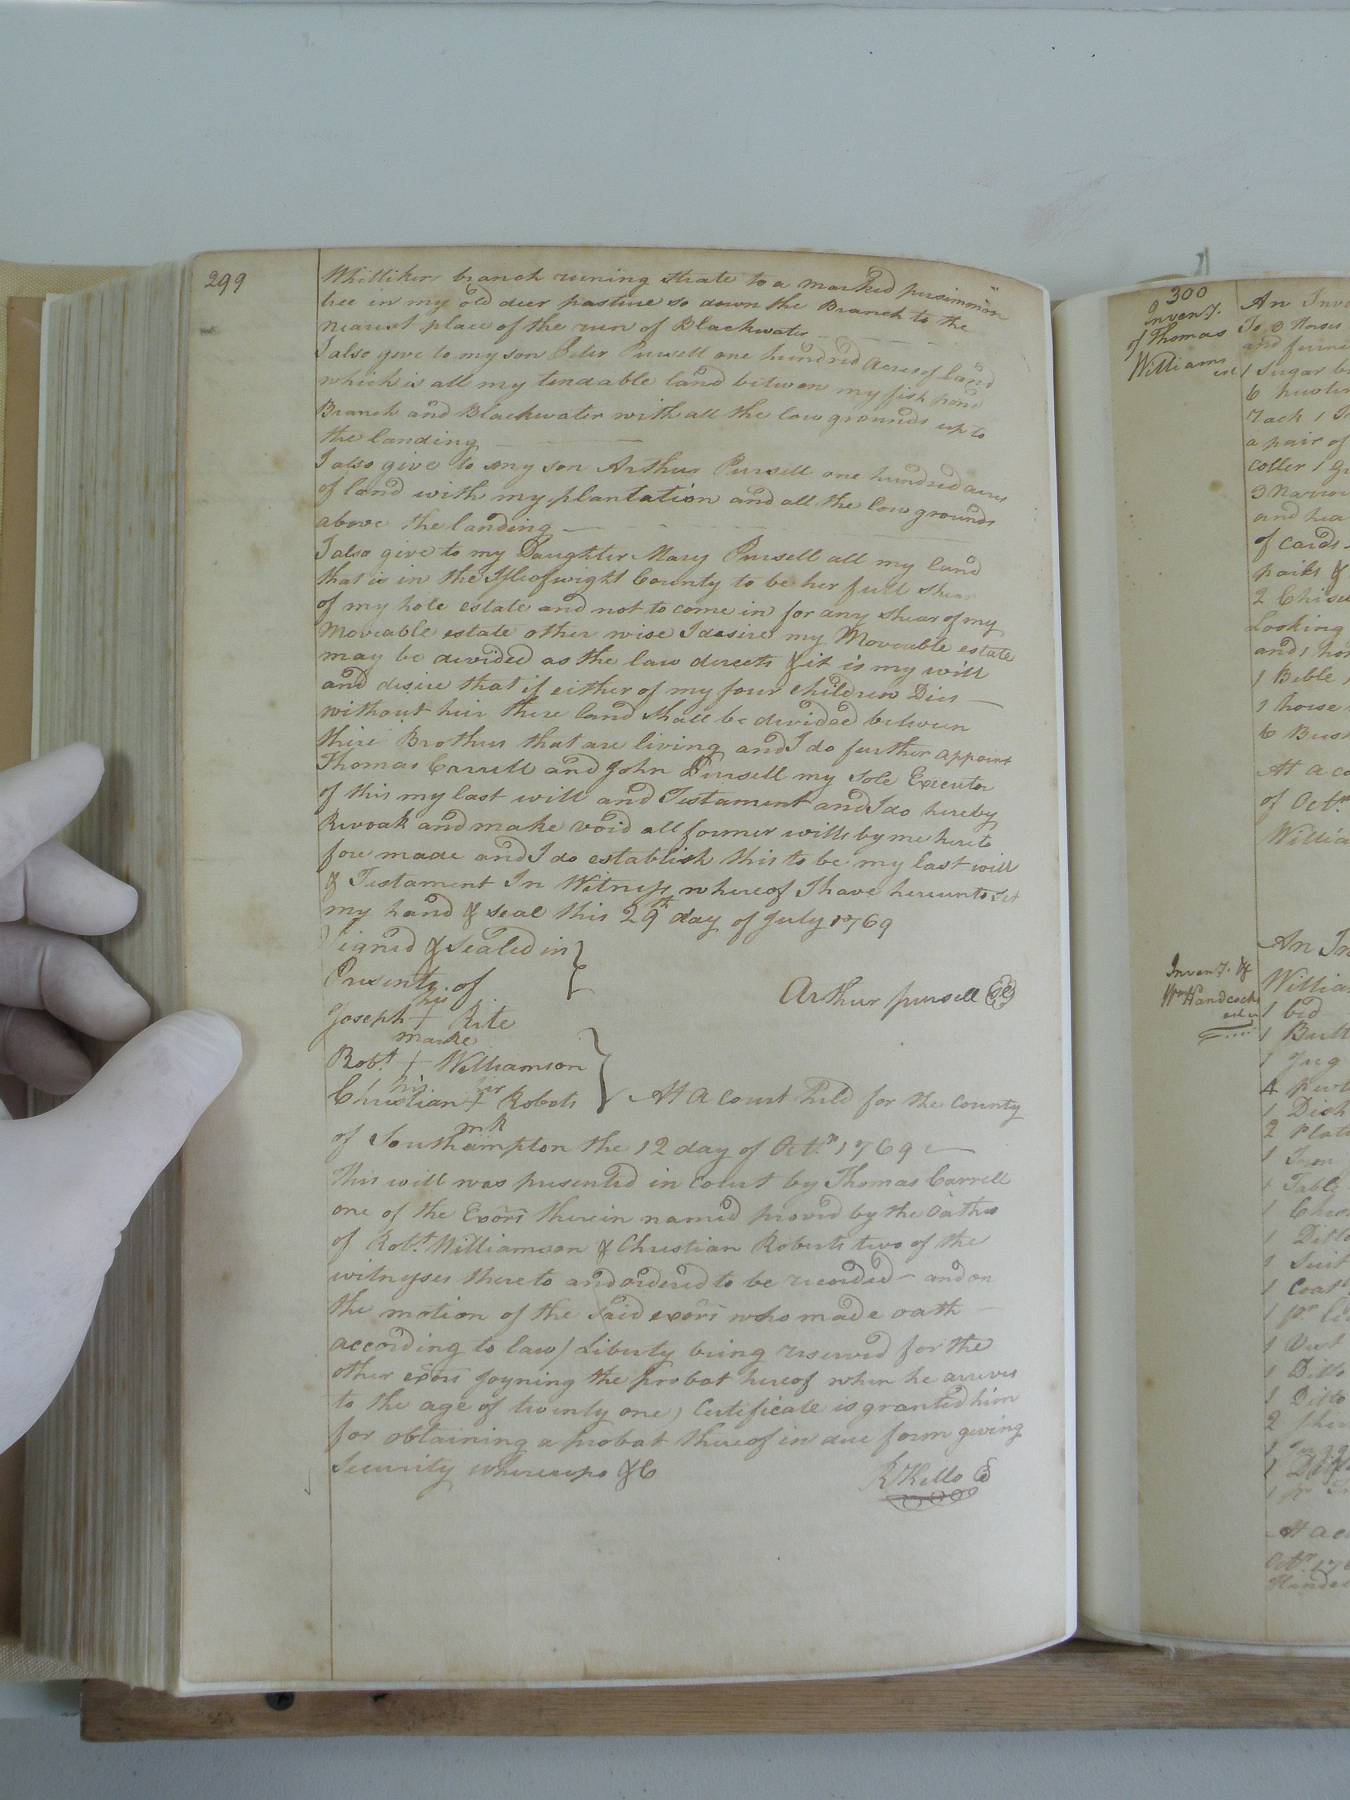 299
Whittiker branch runing strate to a marked persimmon
tree in my old deer pasture so down the Branch to the
nearest place of the run of Blackwater
I also give to my son Peter Pursell one hundred acres of land
which is all my tendable land between my fish pond
Branch and Blackwater with all the low grounds up to
the landing
I also give to my son Arthur Pursell one hundred acres
of land with my plantation and all the low grounds
above the landing
I also give to my Daughter Mary Pursell all my land
that is in the Isleofwight County to be her full shear
of my hole estate and not to come in for any shear of my
Moveable estate other wise I desire my Moveable estate
may be devided as the law derects & it is my will
and desire that if either of my four children Dies
without heir there land shall be devided between
there Brothers that are living and I do further appoint
Thomas Carrell and John Pursell my Sole Executor
of this my last will and Testament and I do hereby
Revoak and make void all former wills by me hereto
fore made and I do establish this to be my last will
& Testament In Witness whereof I have hereunto Set
my hand & seal this 29th day of July 1769
Signed & Sealed in
Presents of
Arthur pursell
his
Joseph + Rite
marke
Robt. + Williamson
his her
Christian + Robets
mk
At a court held for the county
of Southampton the 12 day of Octr. 1769
This will was presented in court by Thomas Carrell
one of the Exors therein named proved by the Oaths
of Robt. Williamson & Christian Roberts two of the
witnesses thereto and ordered to be recorded - and on
the motion of the said exors who made oath
according to law / Liberty being reserved for the
other exors joyning the probat hereof when he arives
to the age of twenty one) Certificate is granted him
for obtaining a probat thereof in due form giving
Security whereupo &C
R Kello
300
Inven y.
of Thomas
Williams
An Inve
To 3 Horses
and
1 Sugar b
6
Rack 1
a pair of
coller 1
3 Narrow
and hea
of cards
parks &
2 Chise
Looking
and 1 ho
1 Bible
1 horse
6 Bus
At a co
of Octr.
Willia
Inven y. of
Wm Handcock
An In
Willia
1 bed
1 Butt
1 Jug
4 pewt
1 Dish
2 Plate
1 Iron
1 Table
1 Ches
1 Ditto
1 Suit
1 Coat
1 pr.
1 Vest
1 Ditto
1 Ditto
2
At a c
Octr. 17
Handc